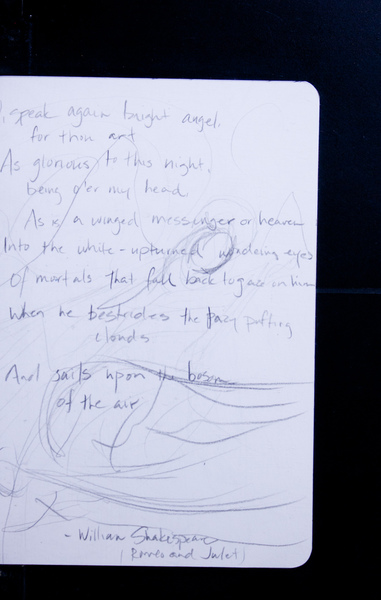 speak again bright angel.
for thou art
As glorious to this night,
being o'er my head
As is a winged messenger or heaven
Into the white-upturned wondering eyes
Of mortals that fall back to gaze on him
When he bestrides the lazy puffing
clouds
And sails upon the bosom
of the air
- William Shakespeare
(Romeo and Juliet)